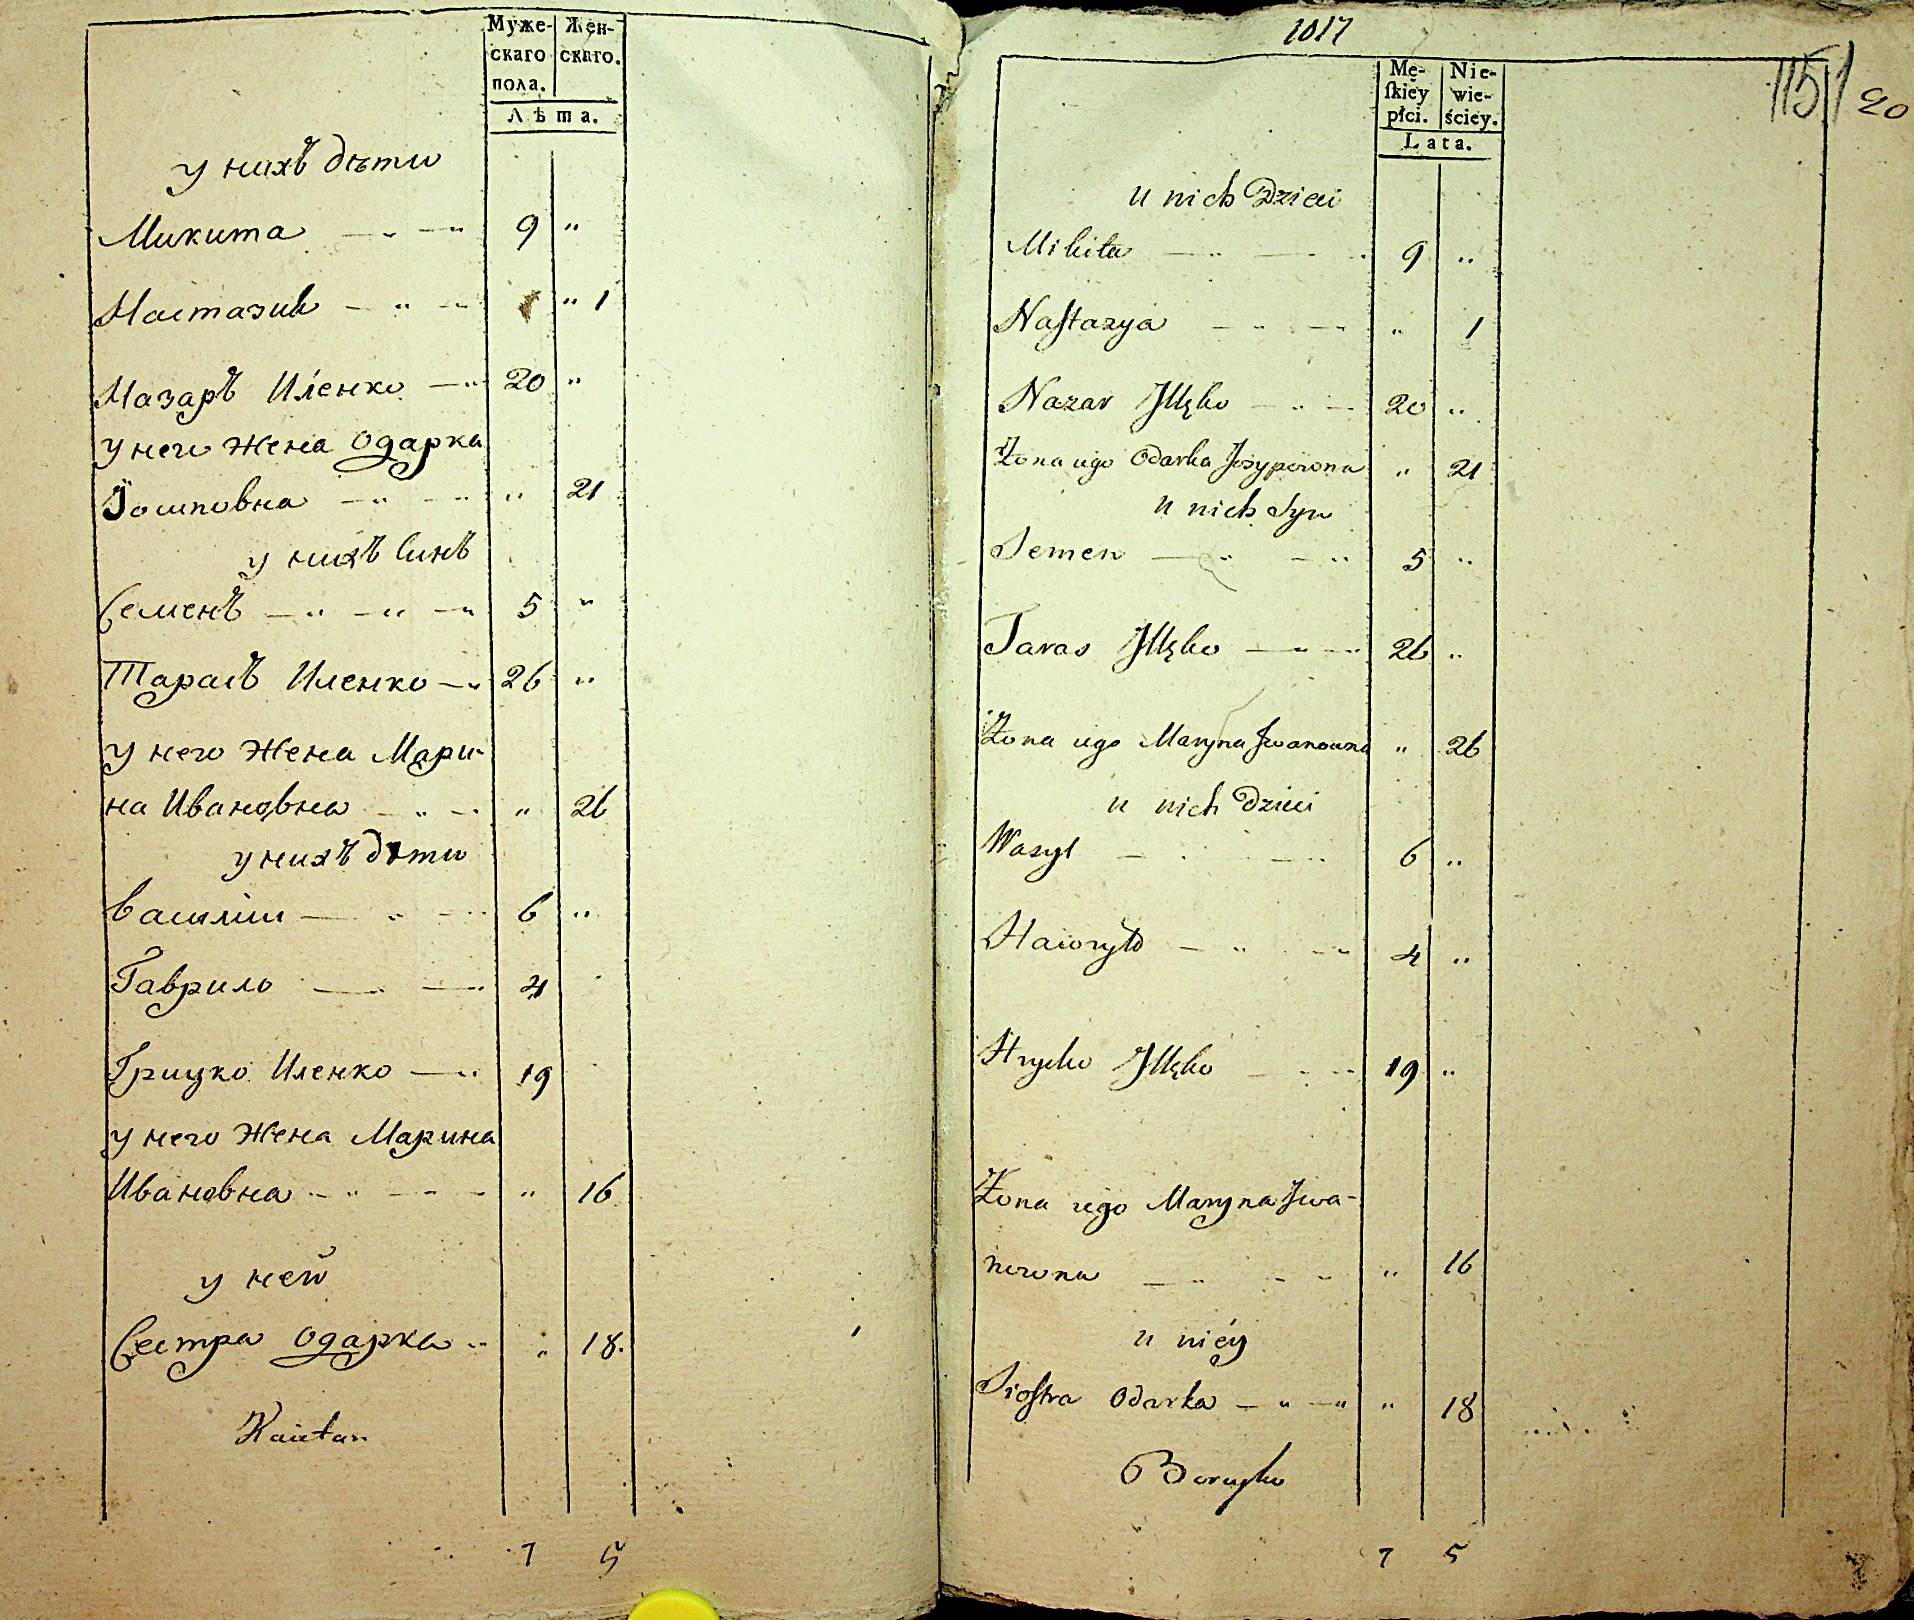 Муже- Жен-
скаго скаго.
пола.
Лѣта.
у нихъ дѣти
Микита 9 "
Настазия " 1
Назаръ Иленко 20 "
у него жена Одарка
Іосиповна " 21
у нихъ Синъ
Семенъ 5 "
Тарасъ Иленко 26 "
у него жена Мари-
на Ивановна " 26
у нихъ дѣти
Василий 6 "
Гаврило 4
Грицко Иленко 19
у него жена Марина
Ивановна " 16
у ней
Сестра Одарка " 18.
7 5
1017
115 20
Mę- Nie-
ſkiey wie-
płci. ściey.
Lata.
u nich Dzieci
Mikita 9 "
Naſtazya " 1
Nazar Jllęko 20 "
Żona iego Odarka Jozypowna " 21
u nich Syn
Semen 5 "
Taras Jllęko 26 "
Żona iego Maryna Jwanowna " 26
u nich Dzieci
Wasyl 6 "
Hawryło 4 "
Hrycko Jllęko 19 "
Żona iego Maryna Jwa-
nowna " 16
u niey
Sioſtra Odarka " 18
7 5